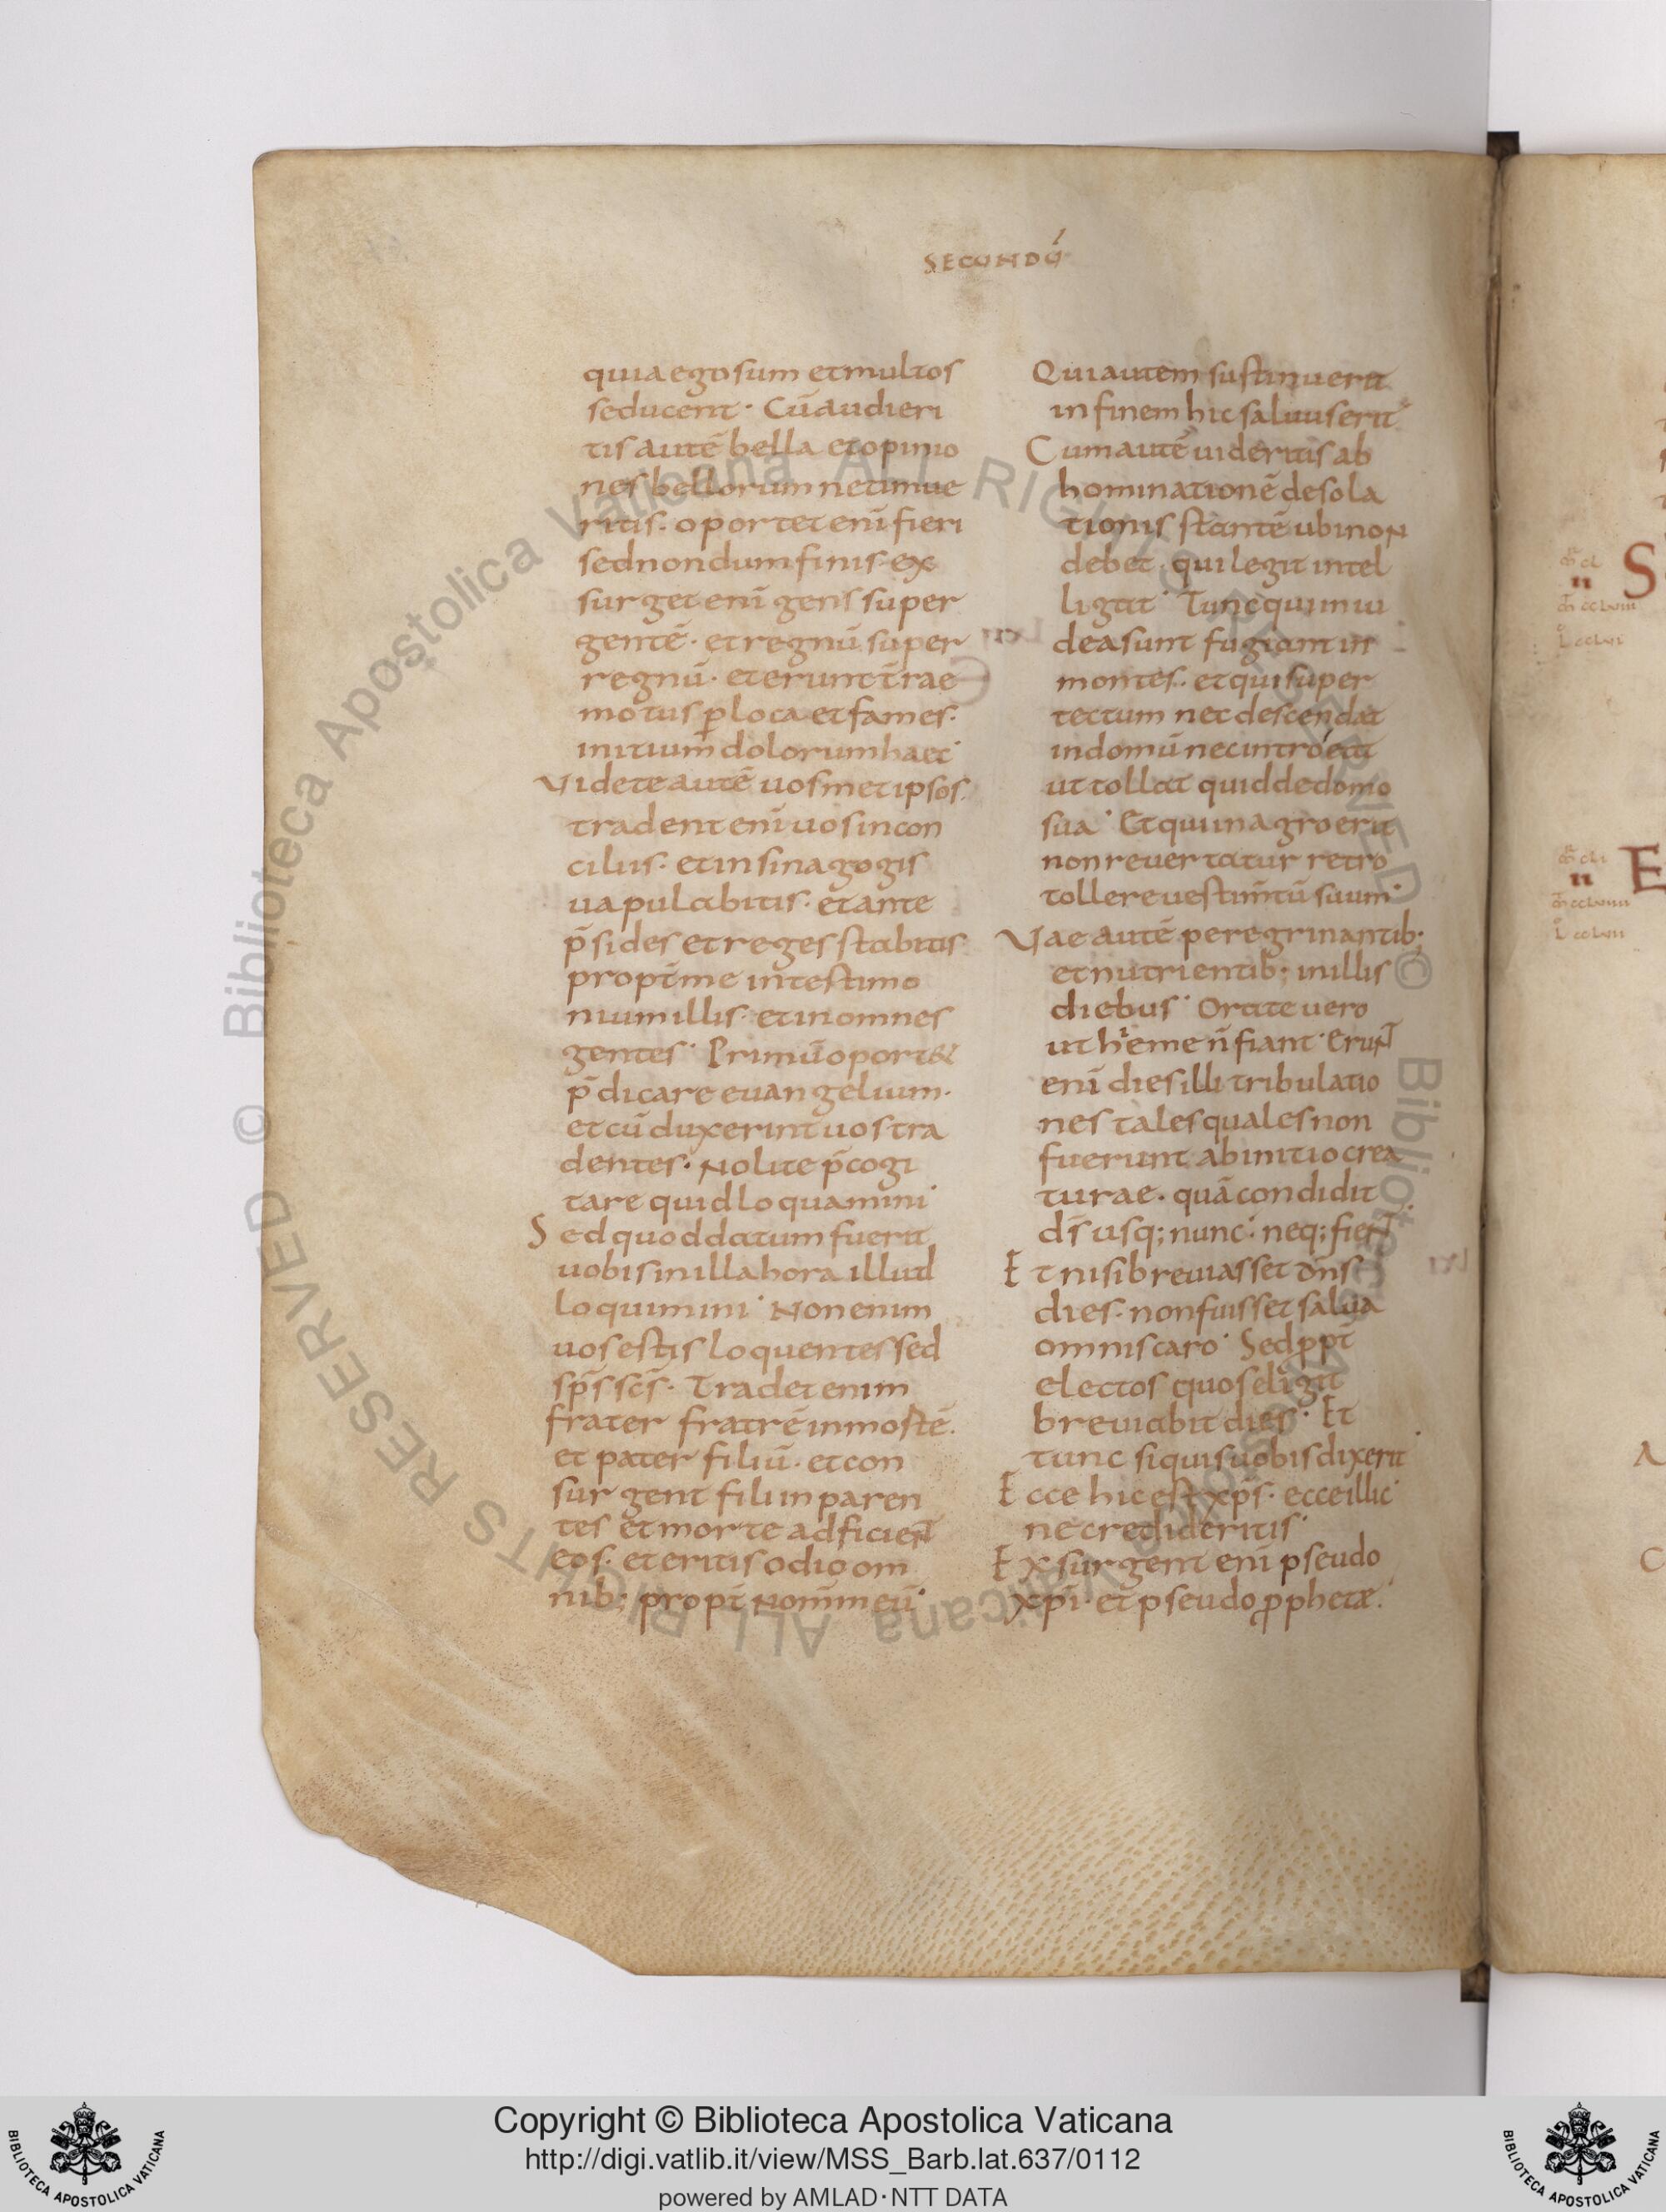 SECUNDŪ
quia ego sum et multos
seducent · Cū audieri
tis autē bella et opinio
nes bellorum ne timue
ritis · oportet enī fieri
sed nondum finis · ex
surget enī gens super
gentē · et regnū super
regnū · et erunt t̄rae
motus ꝑ loca et fames ·
initium dolorum haec ·
Videte autē uosmet ipsos ·
tradent enī uos in con
ciliis · et in sinagogis
uapulabitis · et ante
p̄sides et reges stabitis
propt̄ me in testimo
nium illis · et in omnes
gentes · Primū oport&
p̄dicare euangelium ·
et cū duxerint uos tra
dentes · Nolite p̄cogi
tare quid loquamini ·
Sed quod datum fuerit
uobis in illa hora illud
loquimini · Non enim
uos estis loquentes sed
sp̄s sc̄s · Tradet enim
frater fratrē in mortē ·
et pater filiū · et con
surgent filii in paren
tes et morte adficient
eos · et eritis odio om
nib; propt̄ nom̄ meū ·
Qui autem sustinuerit
in finem hic saluus erit ·
Cum autē uideritis ab
hominationē desola
tionis stantē ubi non
debet · qui legit intel
ligat · Tunc qui in iu
dea sunt fugiant in
montes · et qui super
tectum nec descendat
in domū nec introeat
ut tollat quid de domo
sua · Et qui in agro erit
non reuertatur retro
tollere uestim̄tū suum ·
Vae autē peregrinantib;
et nutrientib; in illis
diebus · Orate uero
ut hieme n̄ fiant · Erunt
enī dies illi tribulatio
nes tales quales non
fuerunt ab initio crea
turae · quā condidit
d̄s usq; nunc · neq; fient
Et nisi breuiasset dn̄s
dies · non fuisset salua
omnis caro · Sed ppt̄
electos quos eligit
breuiabit dies · Et
tunc si quis uobis dixerit ·
Ecce hic est xp̄s · ecce illic ·
ne credideritis ·
Exsurgent enī pseudo
xp̄i · et pseudo ꝓphetæ ·
© Biblioteca Apostolica Vaticana ALL RIGHTS RESERVED
Copyright © Biblioteca Apostolica Vaticana
http://digi.vatlib.it/view/MSS_Barb.lat.637/0112
powered by AMLAD·NTT DATA
BIBLIOTECA APOSTOLICA VATICANA
BIBLIOTECA APOSTOLICA VATICANA